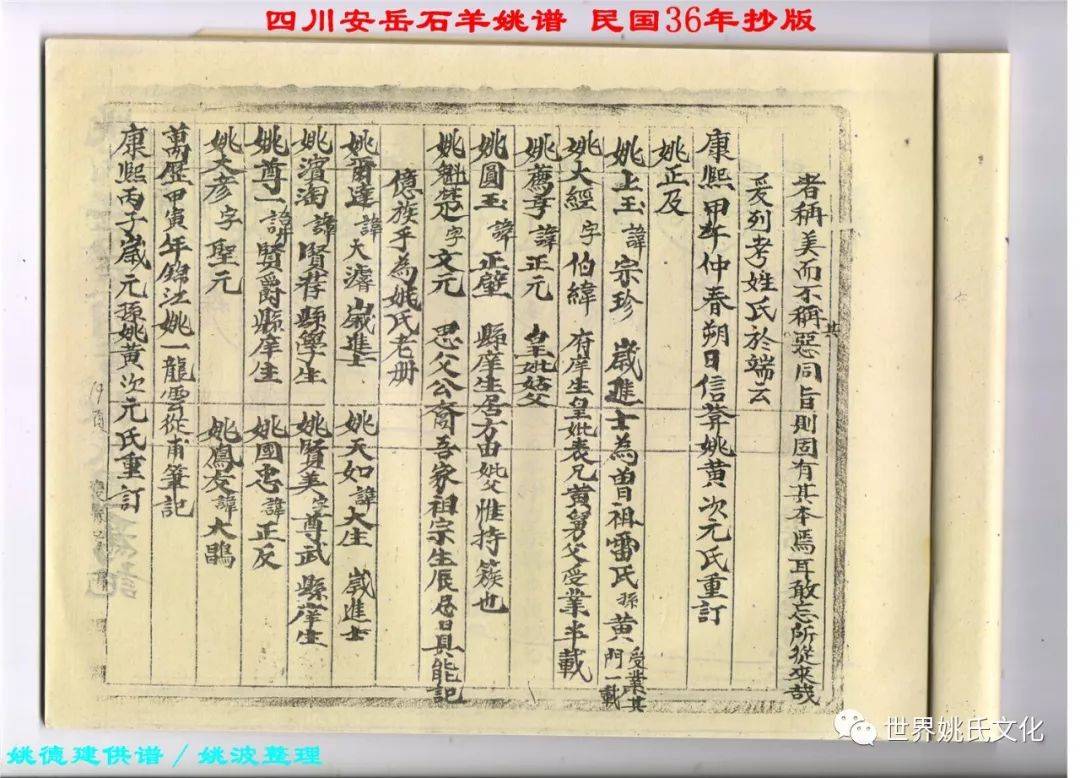 四川安岳石羊姚谱 民国36年抄版
者稱美而不稱惡其同旨則固有其本焉耳敢忘所從來哉
爰列考姓氏於端云
康熙甲午仲春朔日信葊姚黄次元氏重訂
姚正及
姚上玉 諱宗珍 歲進士為曽祖雷氏孫黄受業其門一載
姚大經 字伯緯 府庠生皇妣表兄黄舅父受業半載
姚薦孝 諱正元 皇妣姑父
姚圓玉 諱正壁 縣庠生居方由妣父惟持簇也
姚魁楚 字文元 思父公裔吾家祖宗生辰居日具能記
億族乎為姚氏老册
姚爾達 諱大濬 歲進士 姚天如 諱大生 歲進士
姚濱淘 諱賢荐 縣學生 姚賢美 字尊武 縣庠生
姚尊一 諱賢爵 縣庠生 姚國忠 諱正反
姚大彦 字聖元 姚鳳友 諱大鵾
萬歷甲寅年錦江姚一龍雲從甫筆記
康熙丙子歲元孫姚黄次元氏重訂
姚德建供谱/姚波整理
世界姚氏文化